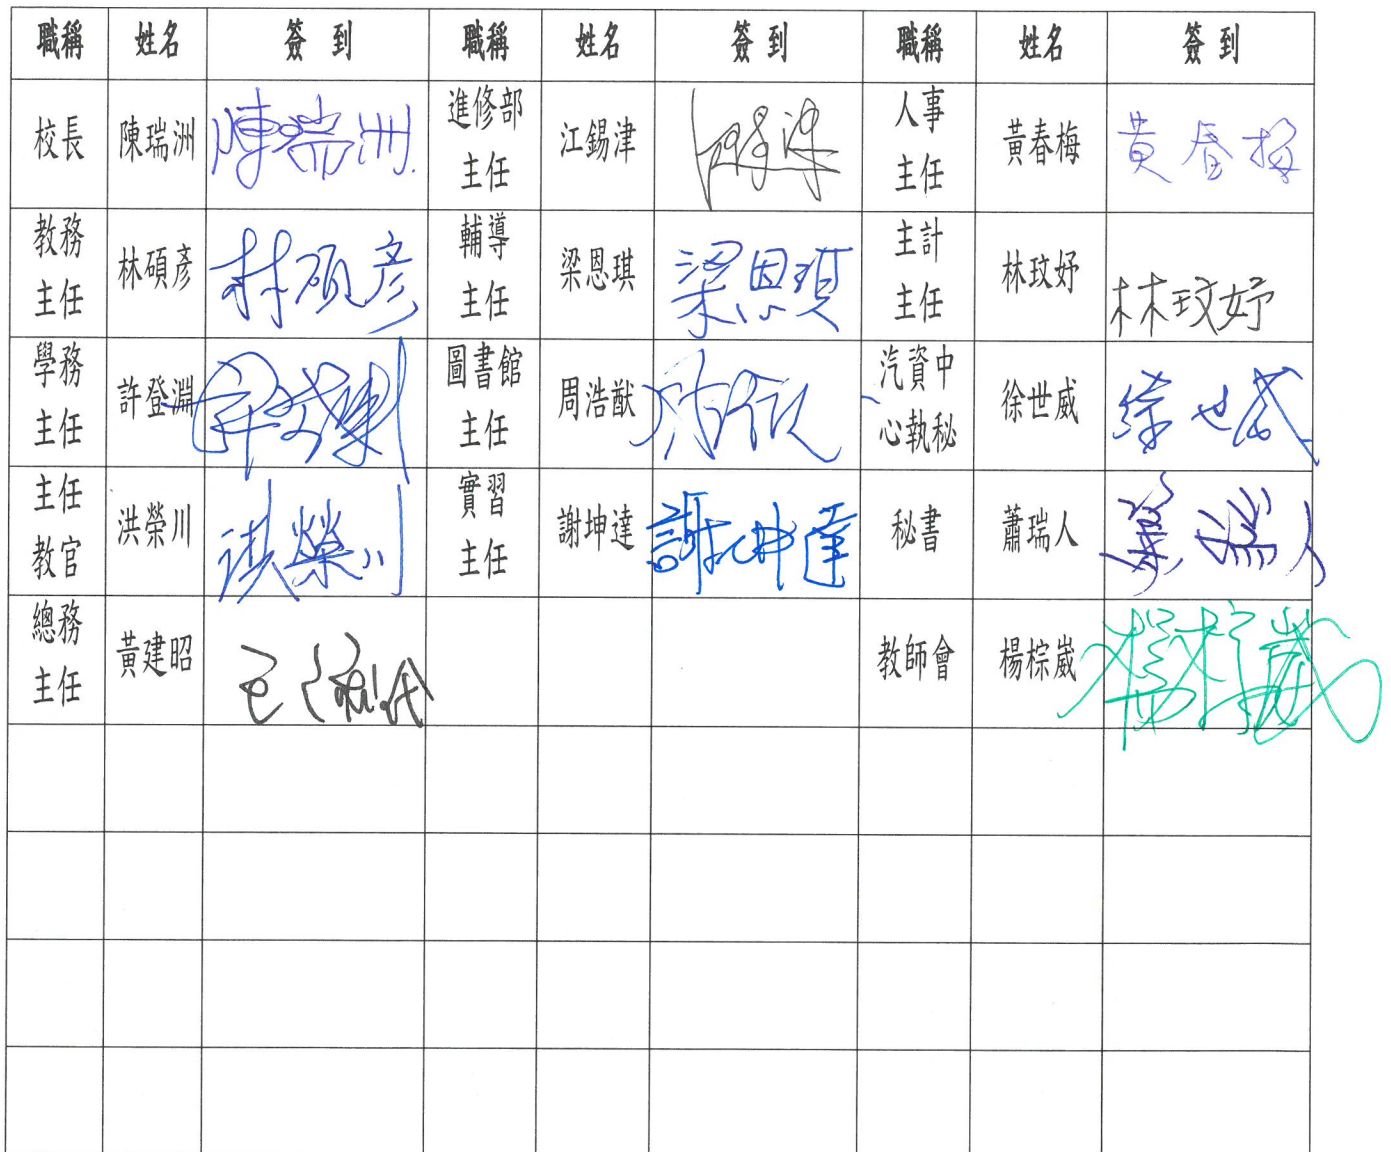 職稱 姓名 簽到 職稱 姓名 簽到 職稱 姓名 簽到
校長 陳瑞洲 陳瑞洲 進修部主任 江錫津 人事主任 黃春梅 黃春梅
教務主任 林碩彥 林碩彥 輔導主任 梁恩琪 梁恩琪 主計主任 林玟妤 林玟妤
學務主任 許登淵 圖書館主任 周浩猷 汽資中心執秘 徐世威 徐世威
主任教官 洪榮川 洪榮川 實習主任 謝坤達 謝坤達 秘書 蕭瑞人
總務主任 黃建昭 教師會 楊棕崴 楊棕崴